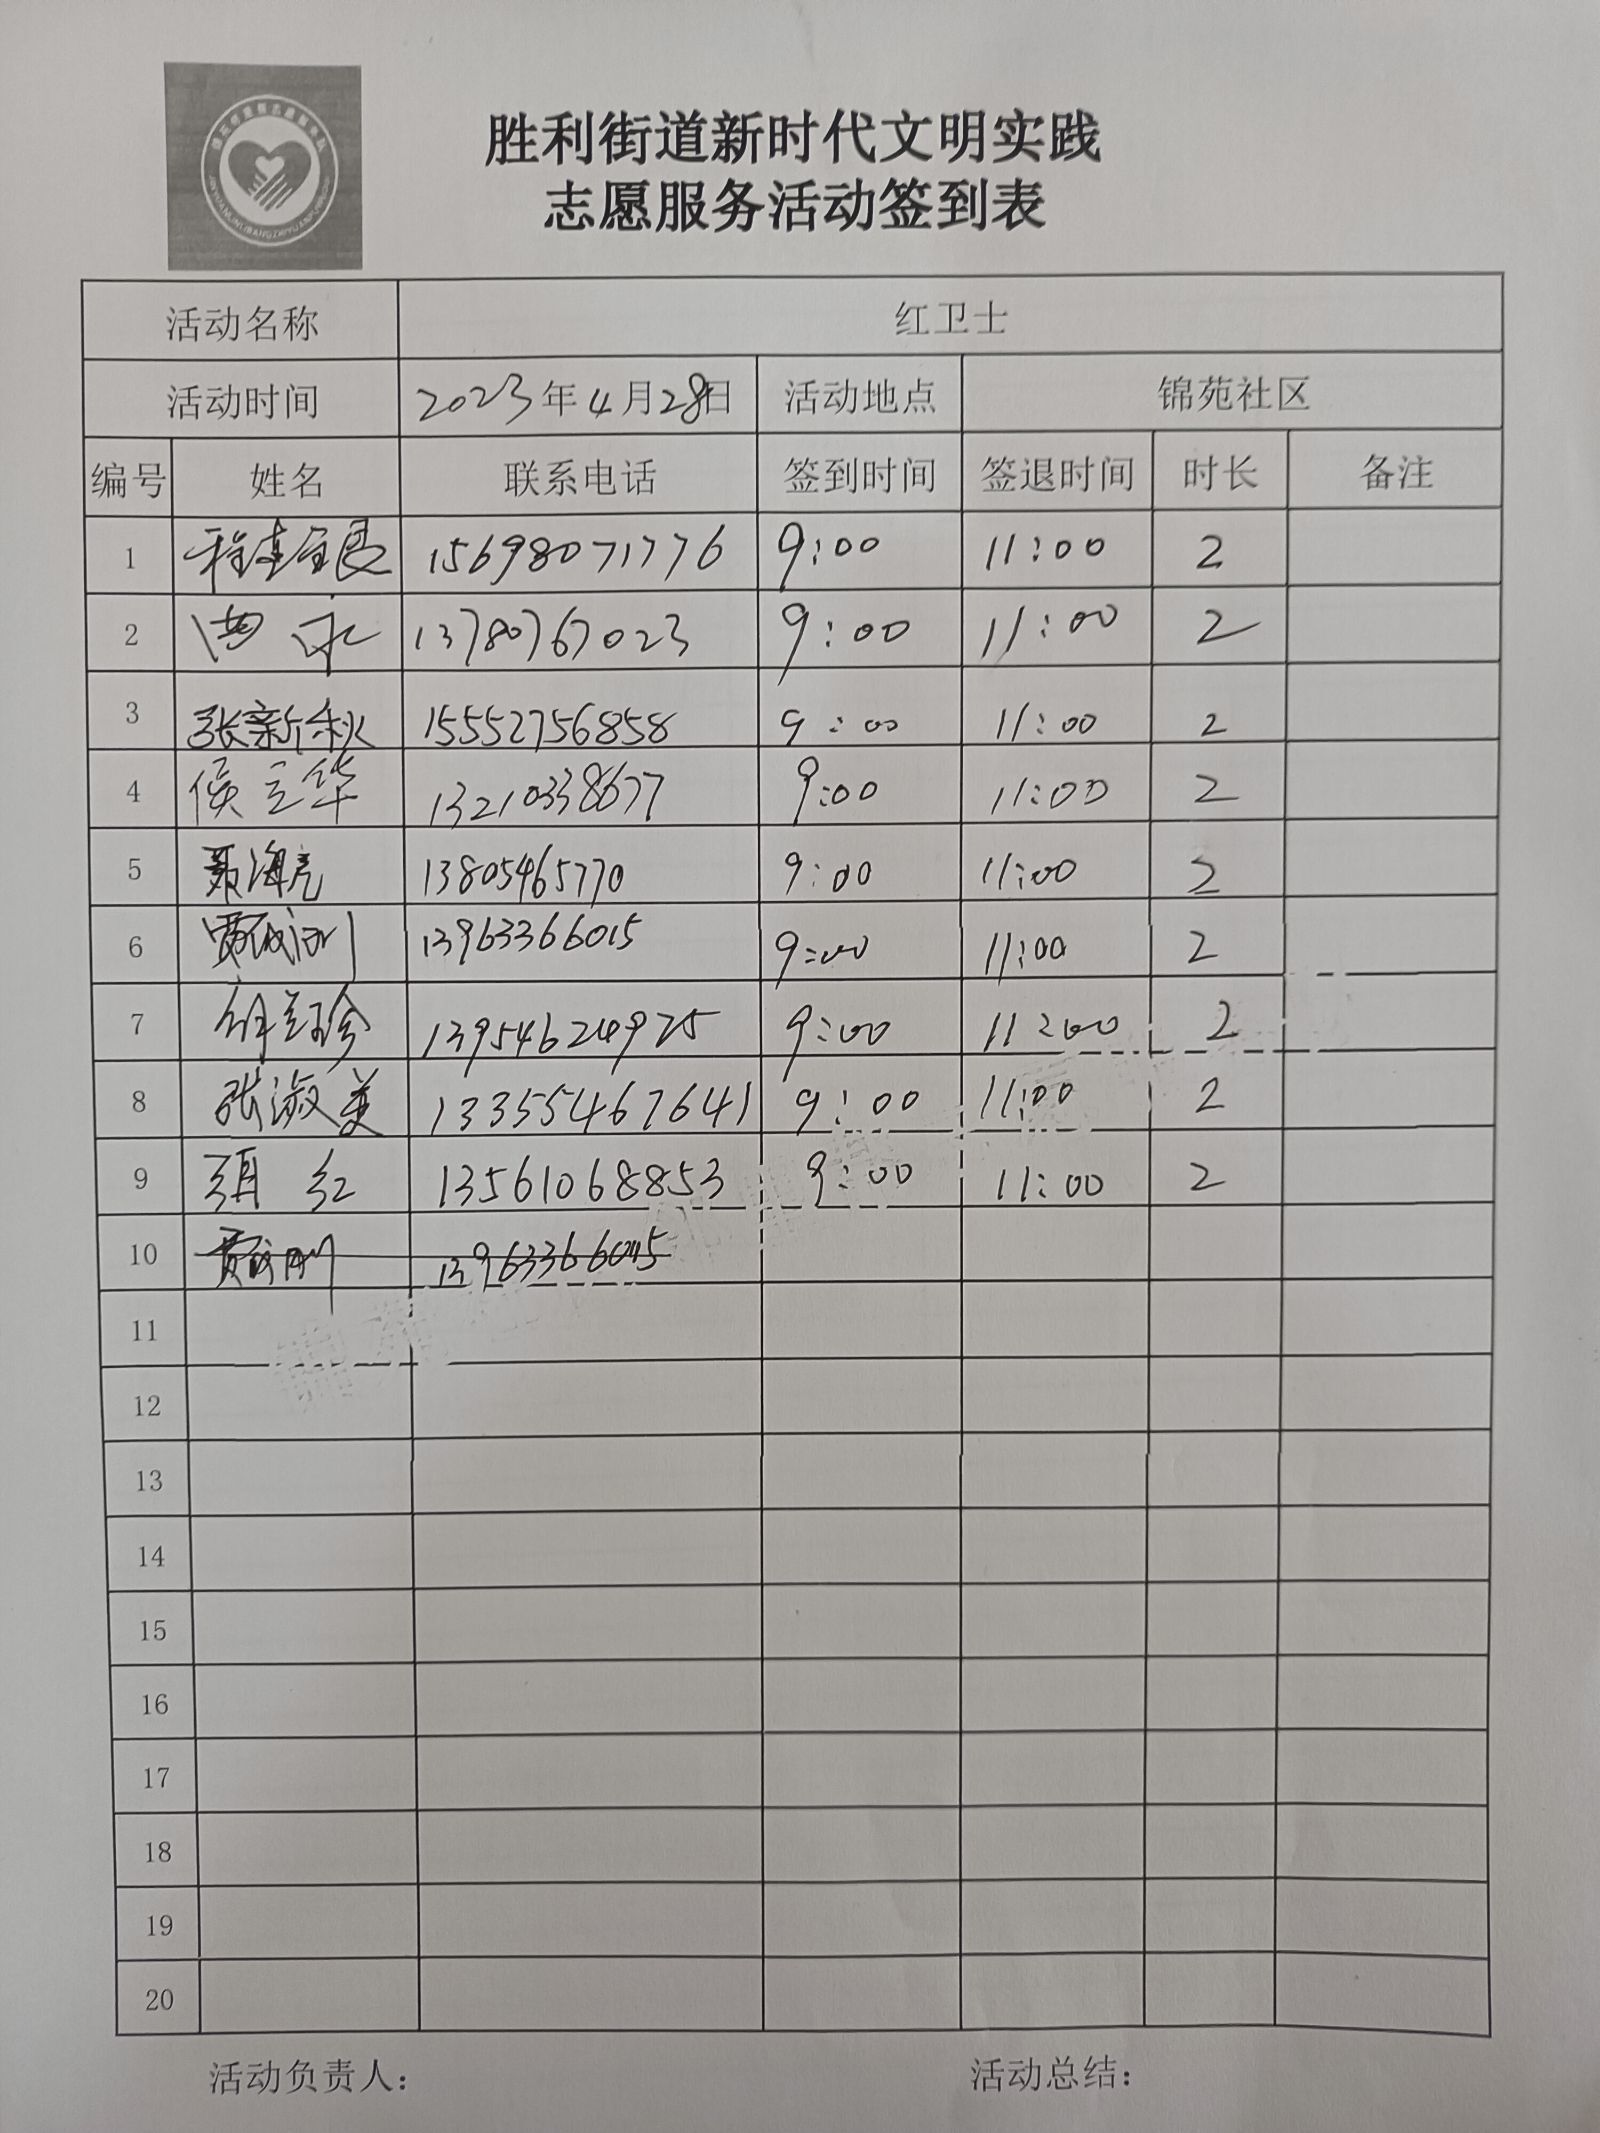 胜利街道新时代文明实践
志愿服务活动签到表
活动名称 红卫士
活动时间 2023年4月28日 活动地点 锦苑社区
编号 姓名 联系电话 签到时间 签退时间 时长 备注
1 15698071776 9:00 11:00 2
2 13780767023 9:00 11:00 2
3 张新秋 15552756858 9:00 11:00 2
4 侯立华 13210338677 9:00 11:00 2
5 聂海亮 13805465770 9:00 11:00 2
6 13963366015 9:00 11:00 2
7 13954624925 9:00 11:00 2
8 张淑美 13355467641 9:00 11:00 2
9 项红 13561068853 9:00 11:00 2
10 13963366015
11
12
13
14
15
16
17
18
19
20
活动负责人： 活动总结：